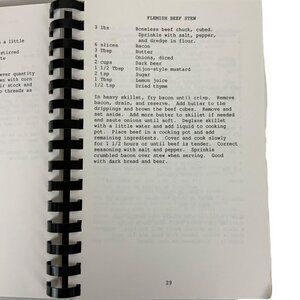 n a little
stirred
ever quantity
es with corn
ir stock and
o threads as
FLEMISH BEEF STEW
3 lbs Boneless beef chuck, cubed.
Sprinkle with salt, pepper,
and dredge in flour.
6 slices Bacon
3 Tbsp Butter
4 Onions, diced
2 cups Dark beer
1 1/2 Tbsp Dijon-style mustard
2 tsp Sugar
1 Tbsp Lemon juice
1/2 tsp Dried thyme
In heavy skillet, fry bacon until crisp. Remove
bacon, drain, and reserve. Add butter to the
drippings and brown the beef cubes. Remove and
set aside. Add more butter to skillet if needed
and saute onions until soft. Deglaze skillet
with a little water and add liquid to cooking
pot. Place beef in a cooking pot and add
remaining ingredients. Cover and cook slowly
for 1 1/2 hours or until beef is tender. Correct
seasoning with salt and pepper. Sprinkle
crumbled bacon over stew when serving. Good
with dark bread and beer.
29